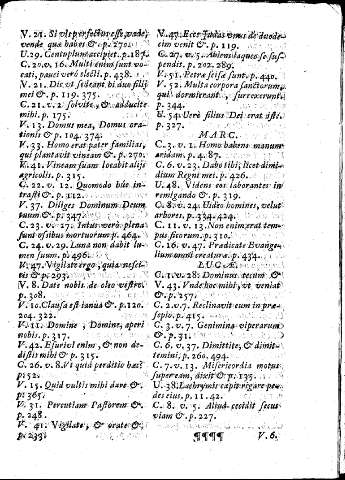 V. 21. Si vis perfectus esse, vade,
vende quæ habes &. p. 270.
U. 29. Centuplum accipiet. p. 187.
C. 20. v. 16. Multi enim sunt vo-
cati, pauci verò electi. p. 438.
V. 21. Dic ut sedeant hi duo filij
mei &. p. 119. 375.
C. 21. v. 2. solvite, & adducite
mihi. p. 175.
V. 13. Domus mea, Domus ora-
tionis &. p. 104. 374.
V. 33. Homo erat pater familias,
qui plantavit vineam &. p. 270.
V. 41. Vineam suam locabit alijs
agricolis. p. 315.
C. 22. v. 12. Quomodo hûc in-
trasti &. p. 112.
V. 37. Diliges Dominum Deum
tuum &. p. 347.
C. 23. v. 27. Intus verò plena
sunt ossibus mortuorum p. 464.
C. 24. v. 29. Luna non dabit lu-
men suum. p. 496.
V. 47. Vigilate ergo, quia nesci-
tis & p. 293.
V. 8. Date nobis de oleo vestro.
p. 308.
V. 10. Clausa est ianua &. p. 120.
204. 322.
V. 11. Domine, Domine, aperi
nobis. p. 317.
V. 42. Esurivi enim, & non de-
distis mihi & p. 315.
C. 26. v. 8. Vt quid perditio hæc?
p. 52.
V. 15. Quid vultis mihi dare &.
p. 365.
V. 31. Percutiam Pastorem &.
p. 248.
V. 41. Vigilate, & orate &.
p. 239.
V. 47. Ecce Iudas unus de duode-
cim venit & p. 119.
C. 27. v. 5. Abiens laqueo se sus-
pendit. p. 202. 289.
V. 51. Petræ scisæ sunt. p. 440.
V. 52. Multa corpora sanctorum,
qui dormierant, surrexerunt.
p. 344.
U. 54. Verè filius Dei erat iste.
p. 327.
MARC.
C. 3. v. 1. Homo habens manum
aridam. p. 4. 87.
C. 6. v. 23. Dabo tibi, licet dimi-
dium Regni mei. p. 426.
U. 48. Videns eos laborantes in
remigando & p. 319.
C. 8. v. 24. Video homines, velut
arbores. p. 334. 424.
C. 11. v. 13. Non enim erat tem-
pus ficorum. p. 310.
C. 16. v. 47. Prædicate Evange-
lium omni creaturæ. p. 434.
LUCÆ.
C. 1. v. 28. Dominus tecum &
V. 43. Vnde hoc mihi, ut veniat
& p. 257.
C. 2. v. 7. Reclinavit eum in præ-
sepio. p. 415.
C. 3. v. 7. Genimina viperarum
& p. 31.
C. 6. v. 37. Dimittite, & dimit-
temini. p. 260. 494.
C. 7. v. 13. Misericordia motus
super eam, dixit & p. 135.
U. 38. Lachrymis capit rigare pe-
des eius. p. 11. 42.
C. 8. v. 5. Aliud cecidit secus
viam & p. 227.
¶¶¶¶ V. 6.